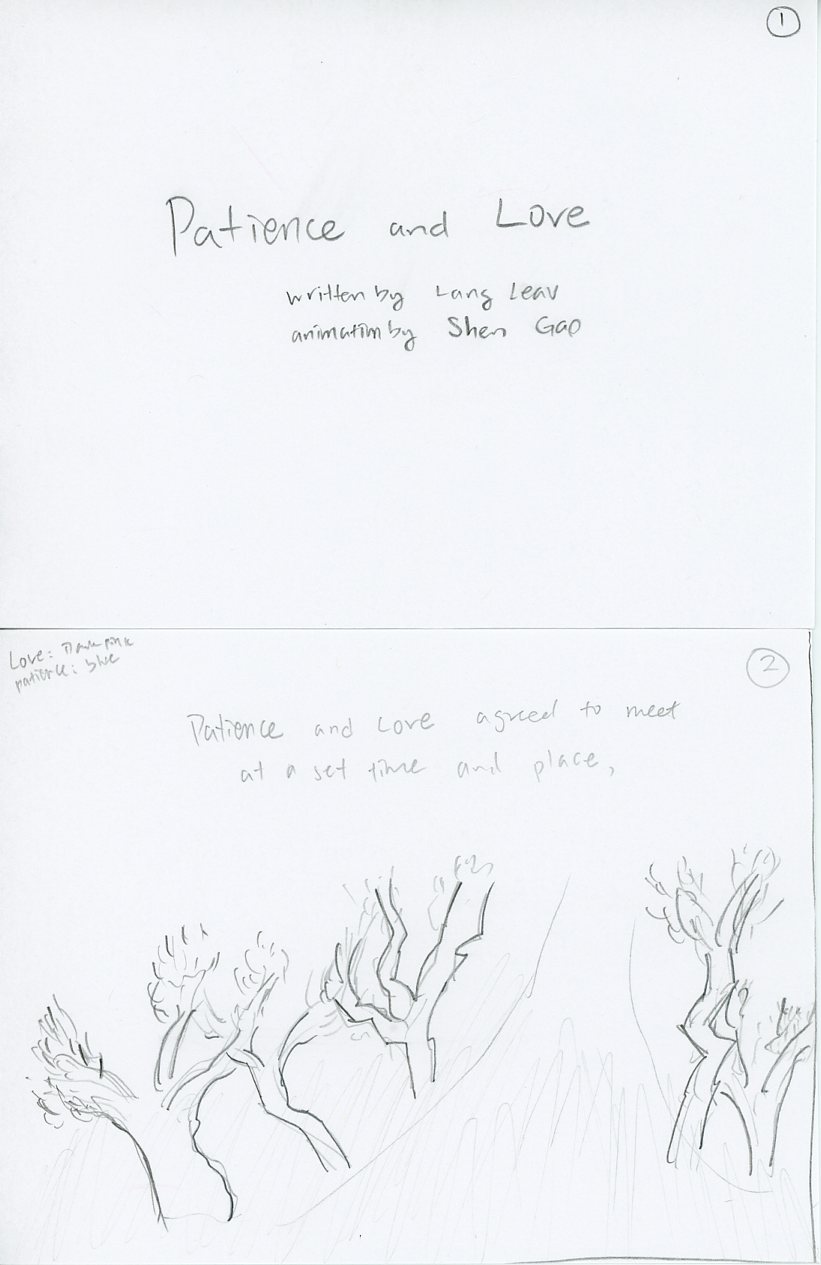 1
Patience and Love
written by Lang Leav
animation by Shen Gao
Love: Dark pink
patience: blue
2
Patience and Love agreed to meet
at a set time and place,